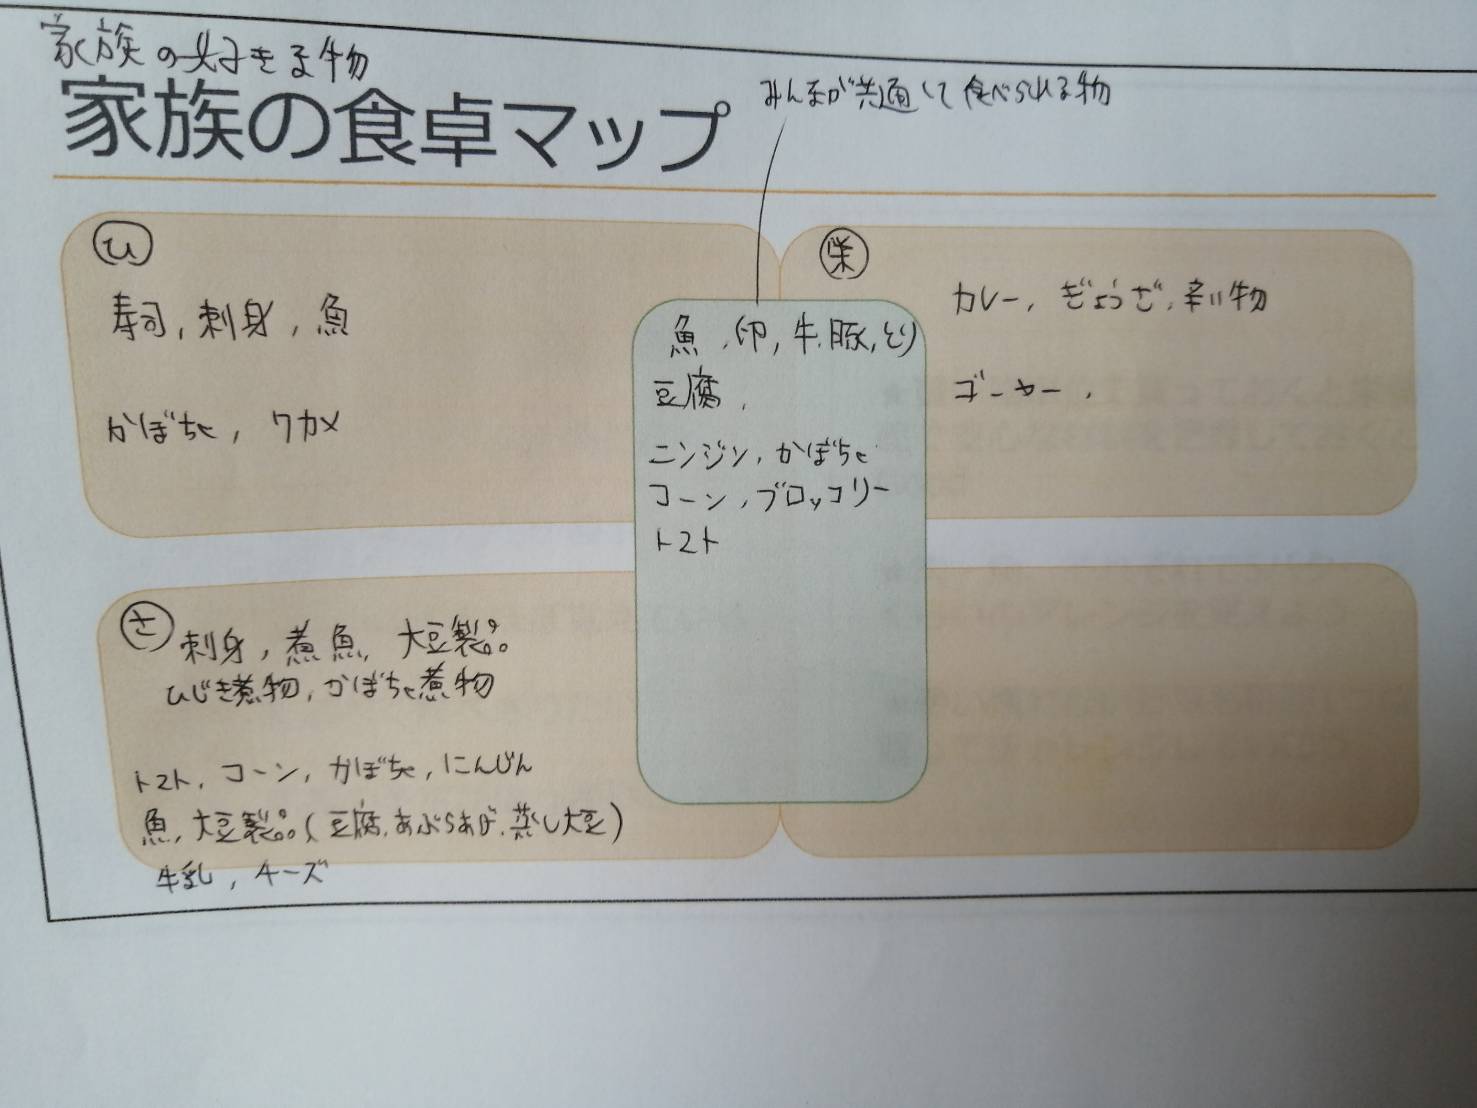 家族の好きな物
みんなが共通して食べられる物
家族の食卓マップ
ひ
寿司,刺身,魚
かぼちゃ,ワカメ
栄
カレー,ぎょうざ,辛い物
ゴーヤー,
魚,卵,牛,豚,とり
豆腐,
ニンジン,かぼちゃ
コーン,ブロッコリー
トマト
さ
刺身,煮魚,大豆製品
ひじき煮物,かぼちゃ煮物
トマト,コーン,かぼちゃ,にんじん
魚,大豆製品(豆腐,あぶらあげ,蒸し大豆)
牛乳,チーズ